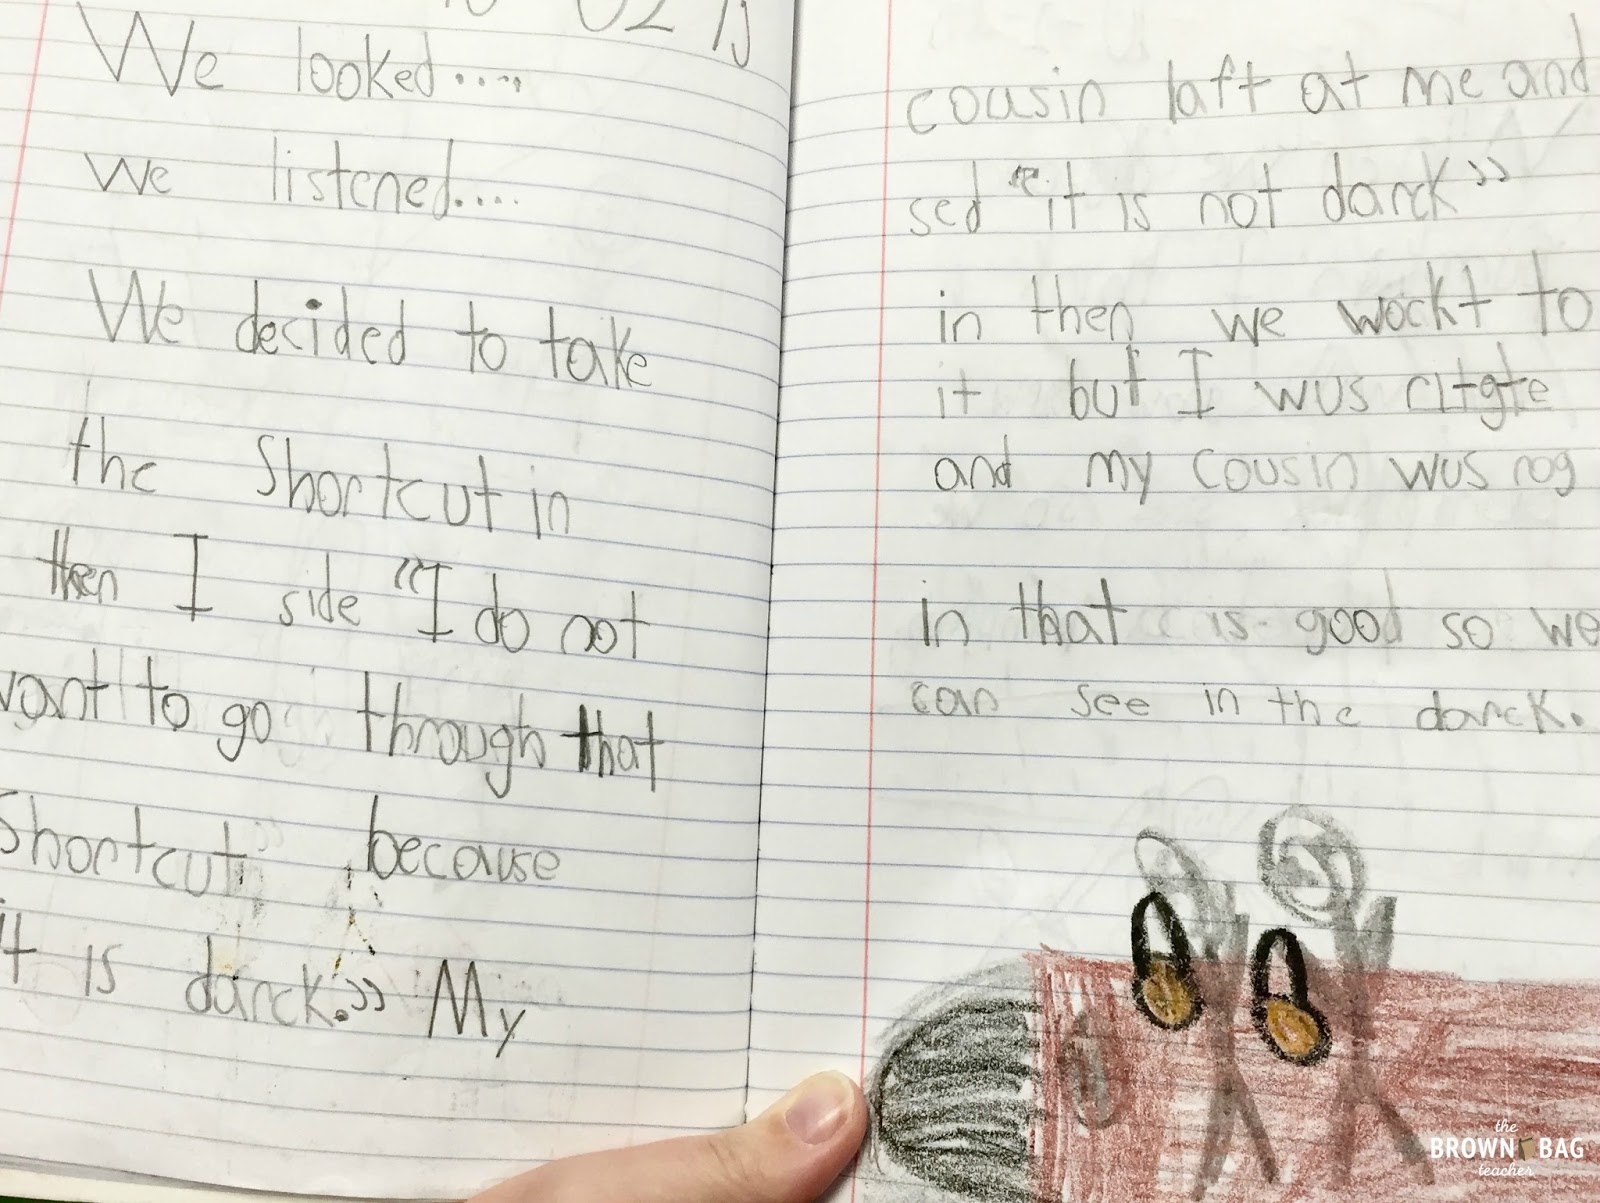 We looked.....
we listened....
We decided to take
the Shortcut in
then I side "I do not
want to go through that
Shortcut" because
it is darck." My
cousin laft at me and
sed "it is not darck"
in then we wockt to
it but I wus ritgte
and my cousin wus rog
in that is good so we
can see in the darck.
the
BROWN BAG
teacher